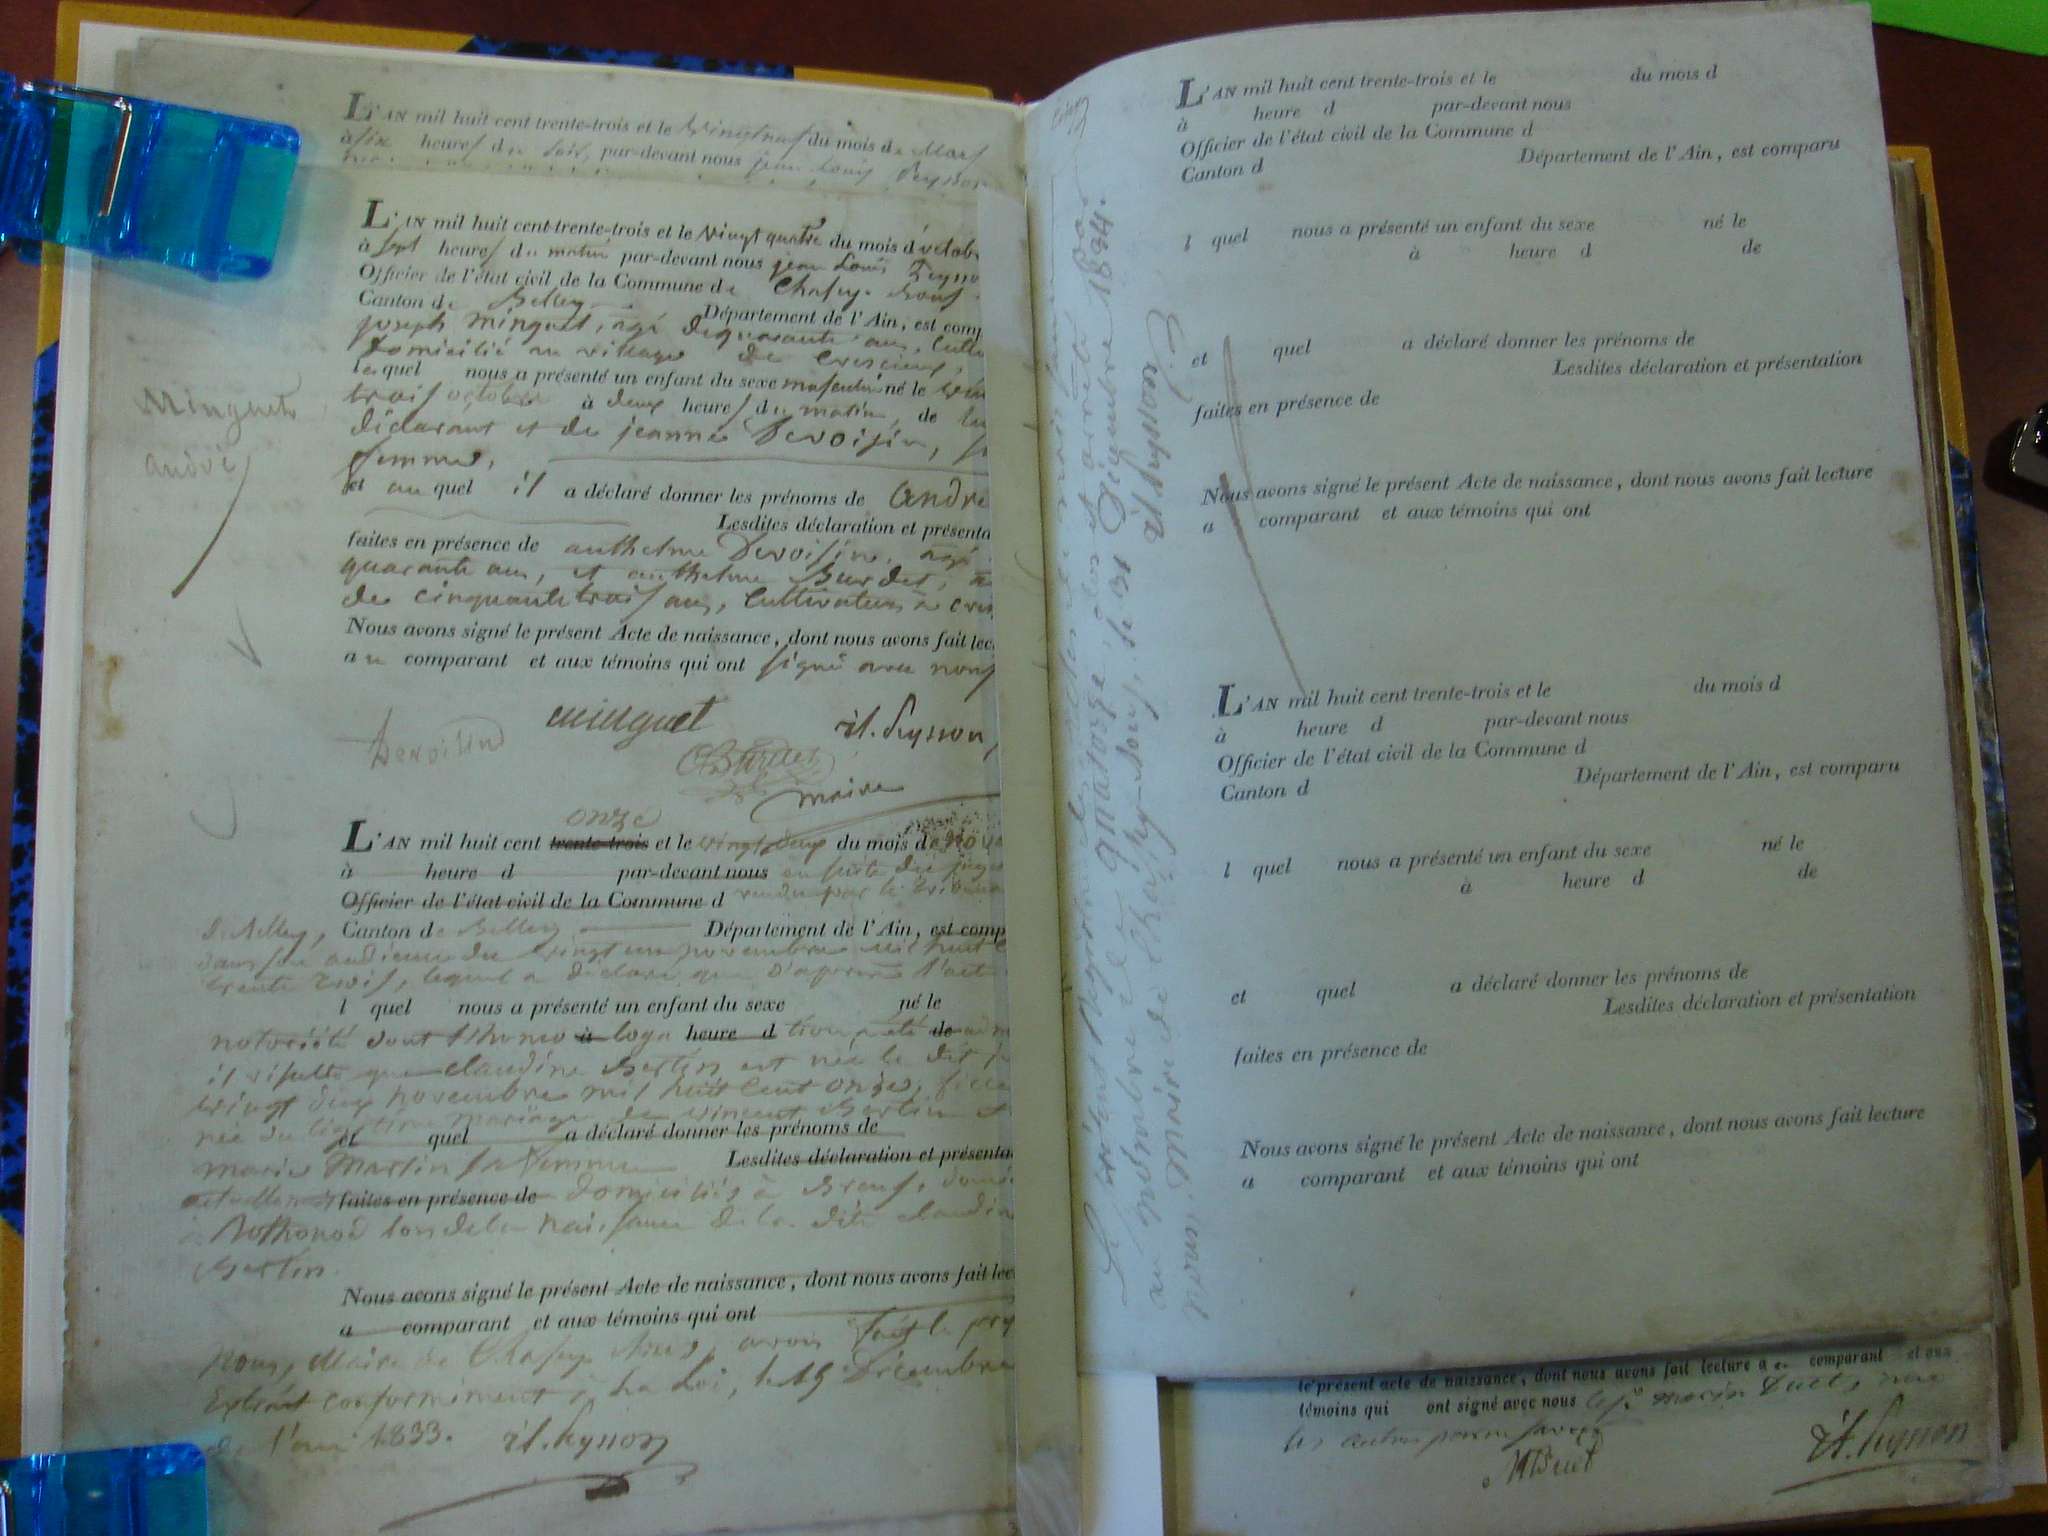 L'AN mil huit cent trente-trois et le vingt neuf du mois de Mars
à six heures du soir, par-devant nous jean Louis Peysson
L'AN mil huit cent trente-trois et le vingt quatre du mois d'octob
à sept heures du matin par-devant nous jean Louis Peysso
Officier de l'état civil de la Commune de Chasey-Bons
Canton de Belley Département de l'Ain, est comp
joseph Minguet, agé de quarante ans, Culti
domicilié au village de Cressieux,
lequel nous a présenté un enfant du sexe masculin né le
trois octobre à deux heures du matin, de lui
déclarant et de jeanne Devoisin, sa
femme,
et au quel il a déclaré donner les prénoms de andré
Lesdites déclaration et présenta
faites en présence de anthelme Devoisin, agé
quarante ans, et anthelme Burdet,
de cinquante trois ans, Cultivateurs à
Nous avons signé le présent Acte de naissance, dont nous avons fait lec
au comparant et aux témoins qui ont signé avec nous
Minguet
andré
Devoisin
minguet
Jl. Peysson,
Burdet
maire
onze
L'AN mil huit cent trente-trois et le vingt deux du mois de nov
à heure d par-devant nous en suite du juge
Officier de l'état civil de la Commune d rendu par le Tribunal
de Belley, Canton de Belley Département de l'Ain, est comp
dans son audience du vingt un novembre mil huit c
trente trois, lequel a déclaré que d'après l'acte
l quel nous a présenté un enfant du sexe né le
notoriété dont l'homo à loga heure d tion a été de
il résulte que claudine Bertin est née le dit
vingt deux novembre mil huit cent onze, fille
née du légitime mariage de vincent Bertin et
et quel a déclaré donner les prénoms de
marie Martin sa femme Lesdites déclaration et présenta
faites en présence de domiciliés à
à Rothonod lors de la naissance de la dite claudine
Bertin.
Nous avons signé le présent Acte de naissance, dont nous avons fait lec
a comparant et aux témoins qui ont
Nous, Maire de Chasey Bons, avons fait le
Extrait conformément à la Loi, le 15 Décembre
de l'an 1833. Jl. Peysson
L'AN mil huit cent trente-trois et le du mois d
à heure d par-devant nous
Officier de l'état civil de la Commune d
Canton d Département de l'Ain, est comparu
l quel nous a présenté un enfant du sexe né le
à heure d de
et quel a déclaré donner les prénoms de
Lesdites déclaration et présentation
faites en présence de
Nous avons signé le présent Acte de naissance, dont nous avons fait lecture
a comparant et aux témoins qui ont
L'AN mil huit cent trente-trois et le du mois d
à heure d par-devant nous
Officier de l'état civil de la Commune d
Canton d Département de l'Ain, est comparu
l quel nous a présenté un enfant du sexe né le
à heure d de
et quel a déclaré donner les prénoms de
Lesdites déclaration et présentation
faites en présence de
Nous avons signé le présent Acte de naissance, dont nous avons fait lecture
a comparant et aux témoins qui ont
Le présent Registre
au nombre de quatorze, clos et arrêté par
nous, Maire de Chasey-Bons, le 1er Janvier 1834.
Jl. Peysson
le présent acte de naissance, dont nous avons fait lecture a comparant et aux
témoins qui ont signé avec nous
Jl. Peysson